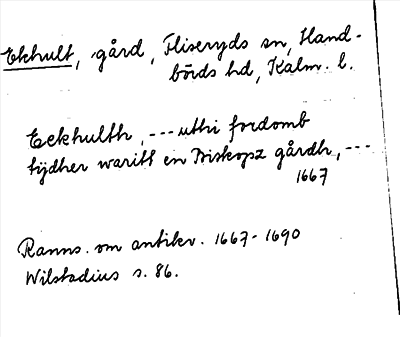 Ekhult, gård, Fliseryds sn, Hand-
börds hd, Kalm. l.
Eekhulth, --- uthi fordomb
tijdher waritt en Biskopz gårdh, ---
1667
Ranns. om antikv. 1667-1690
Wilstadius s. 86.